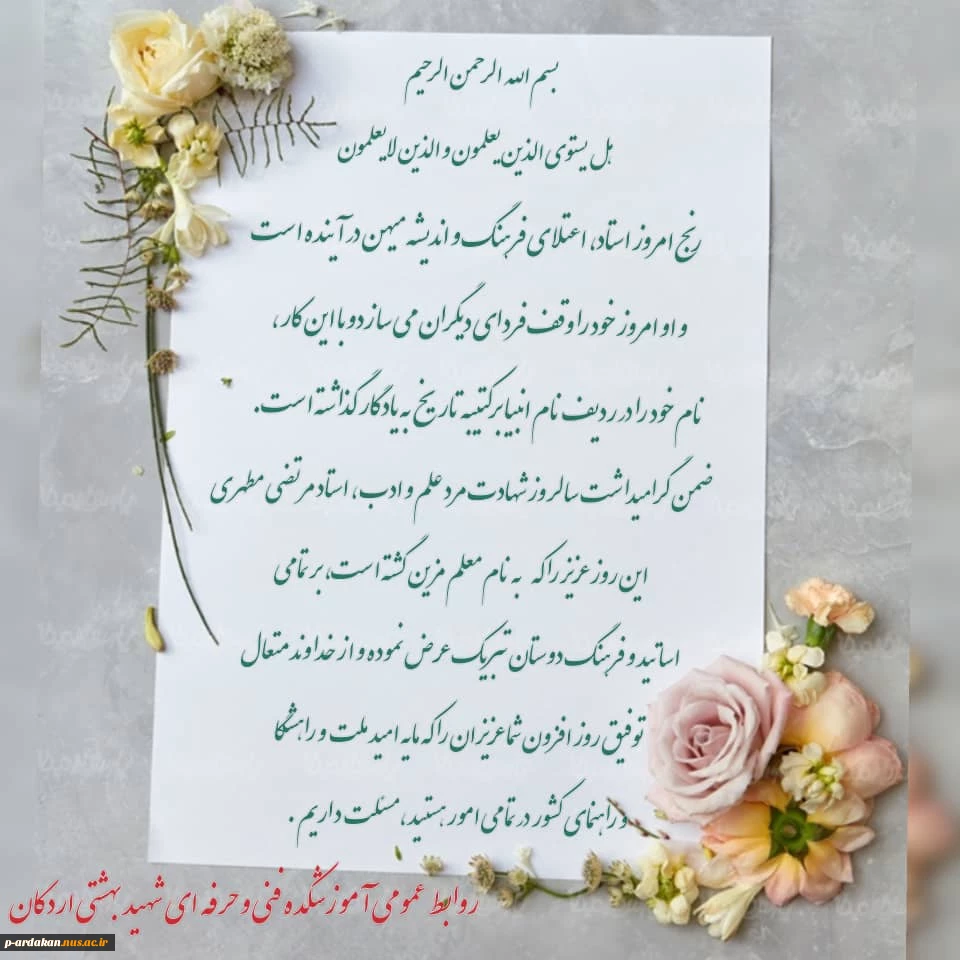 بسم الله الرحمن الرحیم
هل یستوی الذین یعلمون و الذین لا یعلمون
رنج امروز استاد، اعتلای فرهنگ و اندیشه میهن در آینده است
و او امروز خود را وقف فردای دیگران می سازد و با این کار،
نام خود را در ردیف نام انبیا بر کتیبه تاریخ به یادگار گذاشته است.
ضمن گرامیداشت سالروز شهادت مرد علم و ادب، استاد مرتضی مطهری
این روز عزیز را که به نام معلم مزین گشته است، بر تمامی
اساتید و فرهنگ دوستان تبریک عرض نموده و از خداوند متعال
توفیق روز افزون شما عزیزان را که مایه امید ملت و راهشگا
و راهنمای کشور در تمامی امور هستید، مسئلت داریم .
روابط عمومی آموزشکده فنی و حرفه ای شهید بهشتی اردکان
p-ardakan.nus.ac.ir